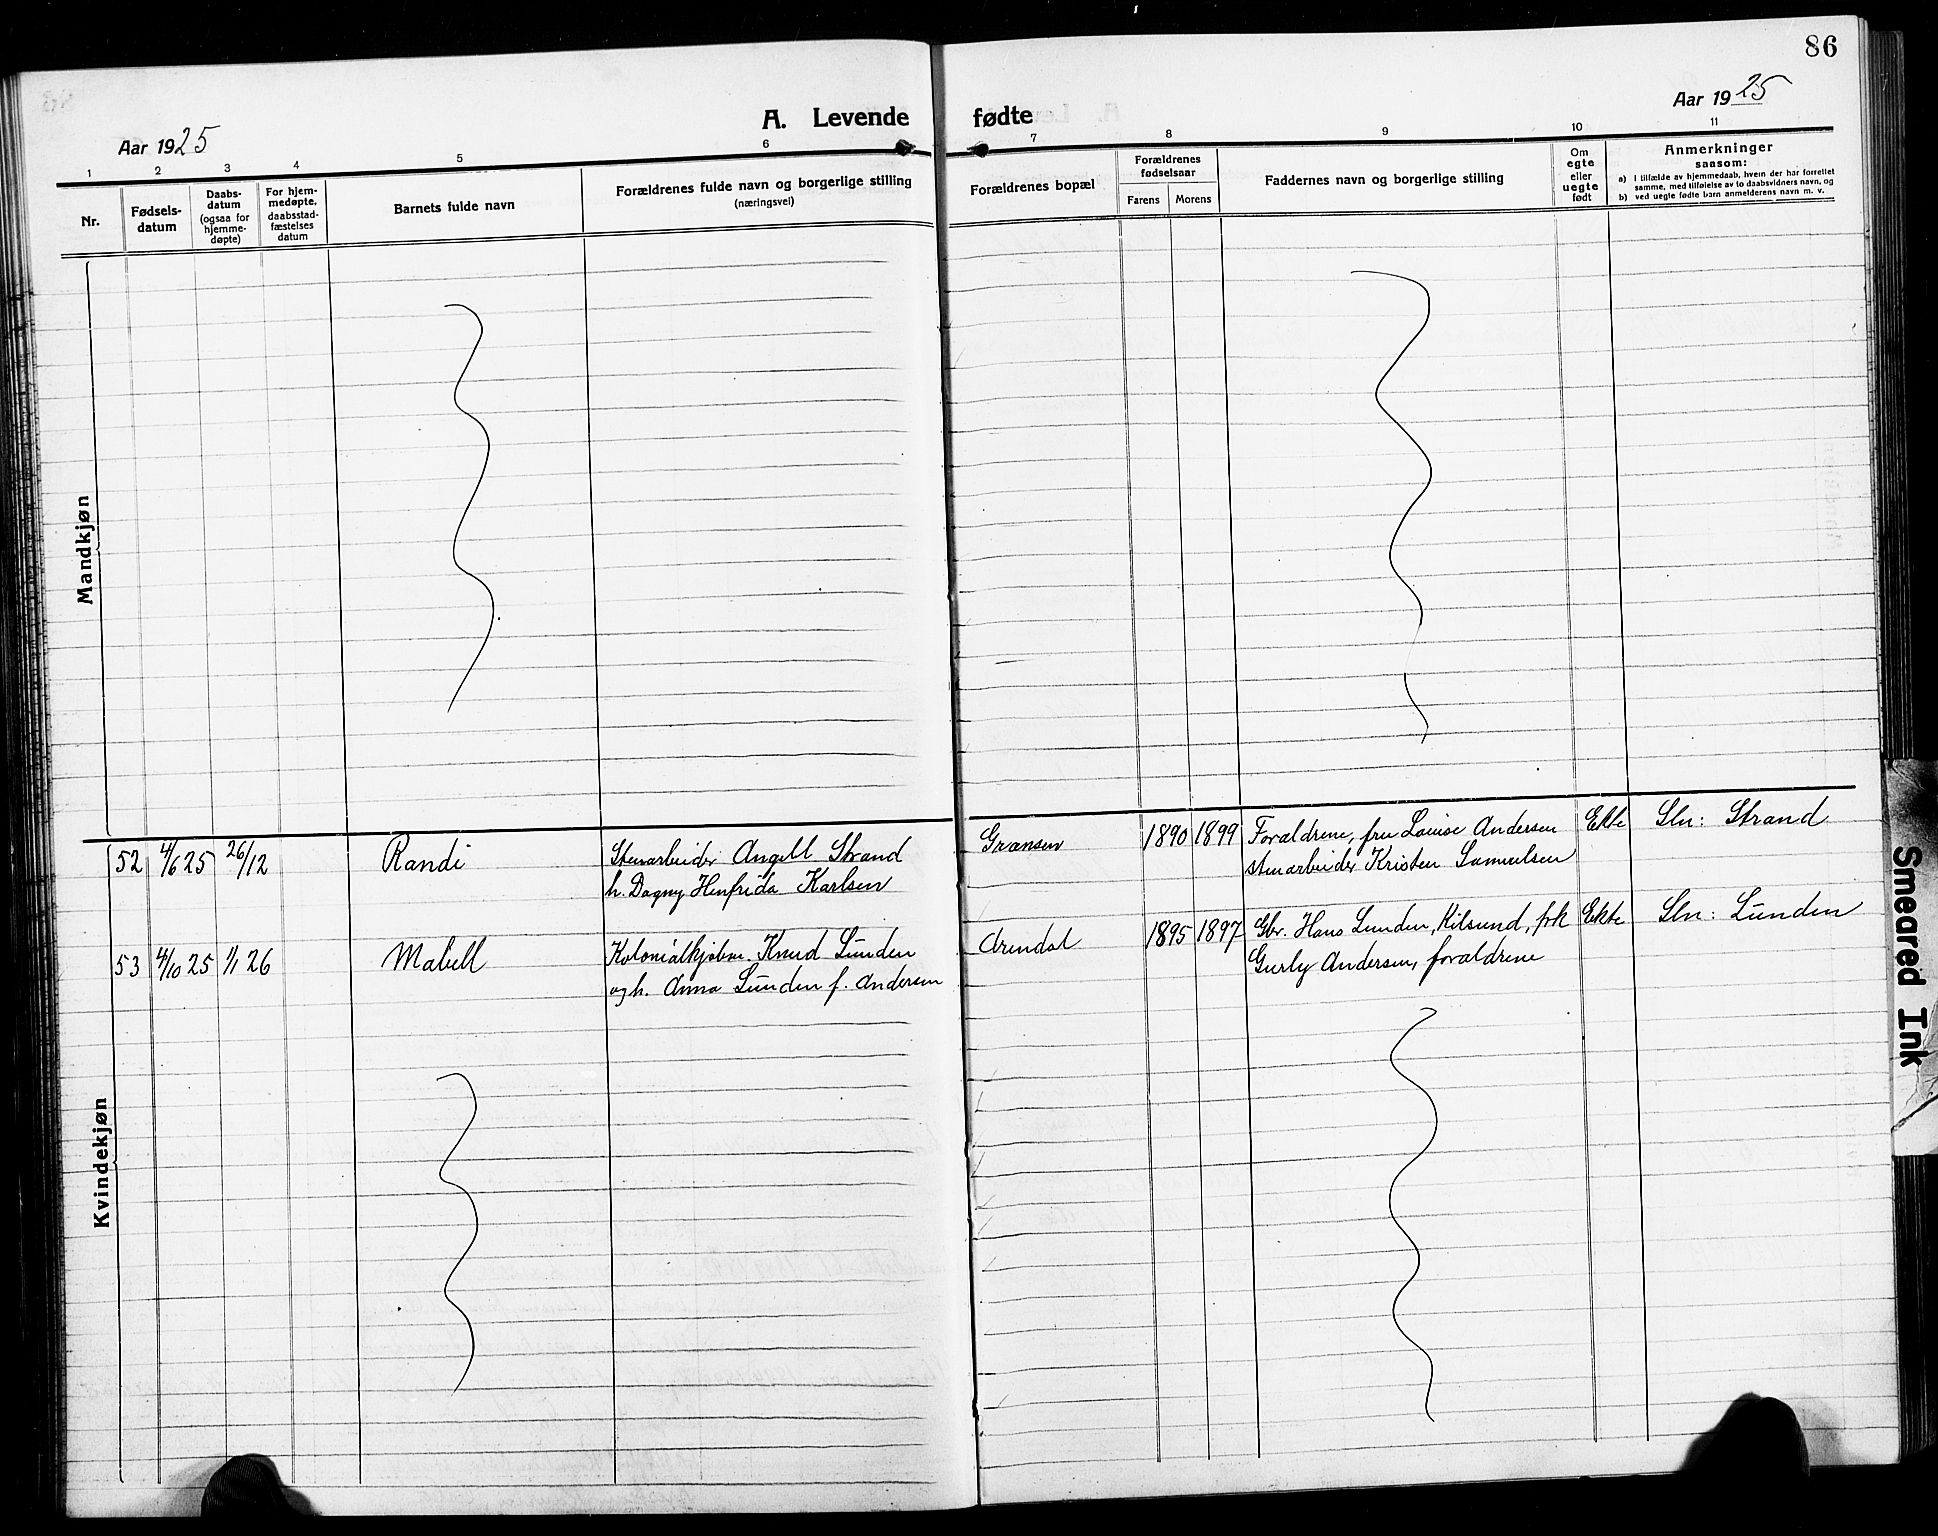 86
A. Levende fødte
Aar 1925
Aar 1925
1 2 3 4 5 6 7 8 9 10 11
Nr.
Fødsels-
datum
Daabs-
datum
(ogsaa for
hjemme-
døpte)
For hjem-
medøpte,
daabsstad-
fæstelses
datum
Barnets fulde navn
Forældrenes fulde navn og borgerlige stilling
(næringsvei)
Forældrenes bopæl
Forældrenes
fødselsaar
Farens Morens
Faddernes navn og borgerlige stilling
Om
egte
eller
uegte
født
Anmerkninger
saasom:
a) I tilfælde av hjemmedaab, hvem der har forrettet
samme, med tilføielse av to daabsvidners navn, og
b) ved uegte fødte barn anmelderens navn m. v.
Mandkjøn
Kvindekjøn
52 4/6 25 26/12 Randi
Stenarbeider Angell Strand
h. Dagny Henfrida Karlsen
Grænsen 1890 1899
Forældrene, fru Louise Andersen
stenarbeider Kristen Samuelsen
Ekte Sln: Strand
53 4/10 25 1/1 26 Mabell
Kolonialkjøbm. Knud Lunden
og h. Anna Lunden f. Andersen
Arendal 1895 1897
Gbr. Hans Lunden, Kilsund, frk
Gurly Andersen, forældrene
Ekte Sln: Lunden
Smeared Ink